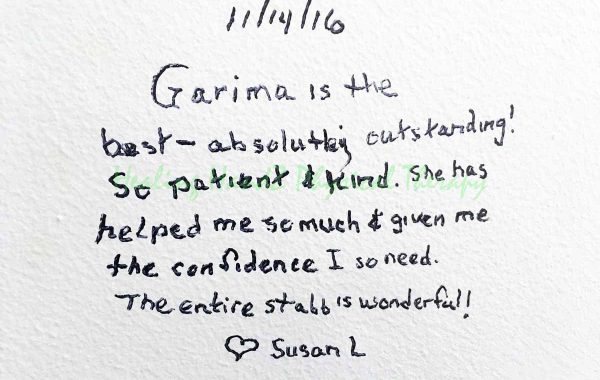 11/14/16
Garima is the
best - absolutly outstanding!
So patient & kind. She has
helped me so much & given me
the confidence I so need.
The entire staff is wonderful!
♡ Susan L